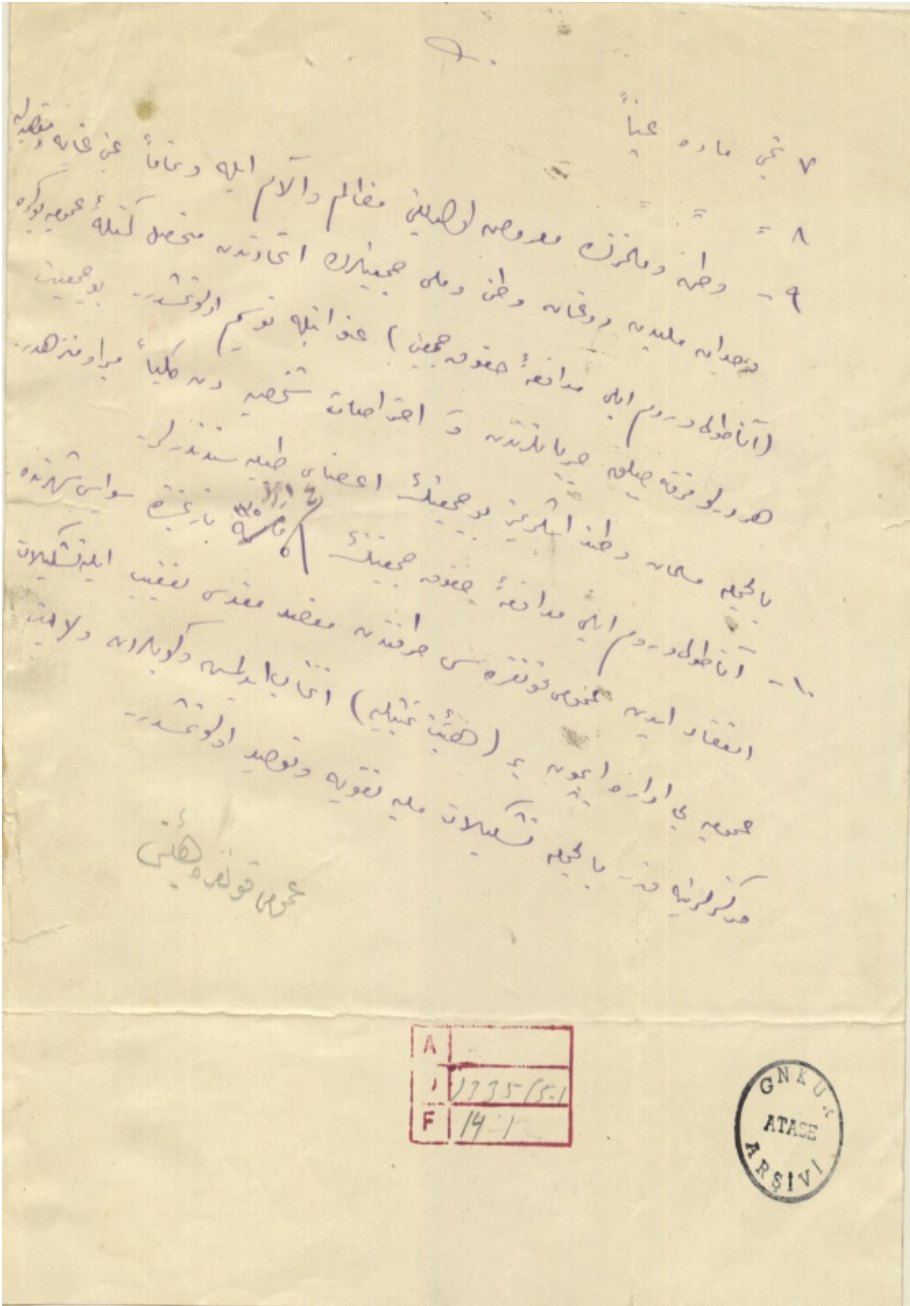 ٧ نجی ماده عیناً
٨ = = =
٩ - وطن و ملتمزك معروض اولدیغی مظالم و آلام ایله و تماماً عین غایه و مقصد ایله
وجدان ملیدن دوغان وطنی و ملی جمعیتلرك اتحادندن متحصل كتلهٔ عمومیه بوكره
(آناطولی و روم ایلی مدافعهٔ حقوق جمعیتی) عنوانیله توسیم اولونمشدر. بو جمعیت
هر درلو فرقه جیلق جریانلرندن و احتراصات شخصیه دن كلیاً مبرا و منزهدر.
بالجمله مسلمان وطنداشلریمز بو جمعیتك اعضای طبیعیه سندندرلر.
١٠ - آناطولی و روم ایلی مدافعهٔ حقوق جمعیتنك ٤ ایلول ٣٣٥ تاریخنده سیواس شهرنده
انعقاد ایدن عمومی قونغره سی طرفندن مقصد مقدسی تعقیب ایله تشكیلات
عمومیه یی اداره ایچون بر (هیئت تمثیلیه) انتخاب ایدلمش و كویلردن ولایت
مركزلرینه قدر بالجمله تشكیلات ملیه تقویه و توحید اولونمشدر.
عمومی قونغره هیئتی
A
1 1335/5-1
F 14-1
GNKUR
ATASE
ARŞİVİ